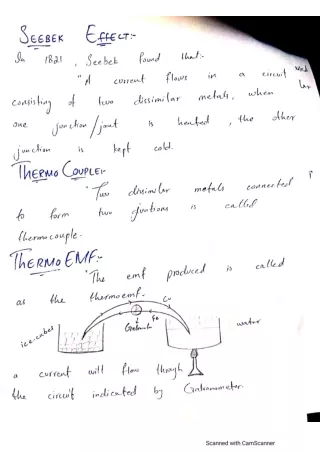 SEEBEK EFFECT:-
In 1821, Seebek found that:-
"A current flows in a circuit
consisting of two dissimilar metals, when
one junction/joint is heated, the other
junction is kept cold.
THERMO COUPLE:-
"Two dissimilar metals connected
to form two juntions is called
thermocouple.
THERMO EMF:-
"The emf produced is called
as the thermoemf.
Cu
Fe
ice-cubes
water
a current will flow through
the circuit indicated by Galvanometer.
Scanned with CamScanner